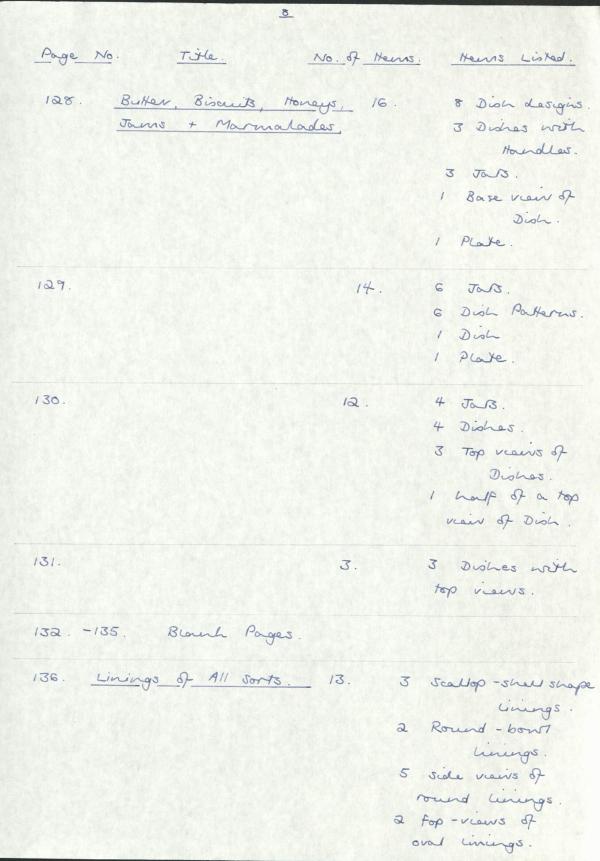 8
Page No. Title. No. of Items. Items Listed.
128. Butter, Biscuits, Honeys, 16. 8 Dish designs.
Jams + Marmalades. 3 Dishes with
Handles.
3 Jars.
1 Base view of
Dish.
1 Plate.
129. 14. 6 Jars.
6 Dish Patterns.
1 Dish
1 Plate.
130. 12. 4 Jars.
4 Dishes.
3 Top views of
Dishes.
1 half of a top
view of Dish.
131. 3. 3 Dishes with
top views.
132. -135. Blank Pages.
136. Linings of All Sorts. 13. 3 Scallop-shell shape
linings.
2 Round-bowl
linings.
5 side views of
round linings.
2 top-views of
oval linings.